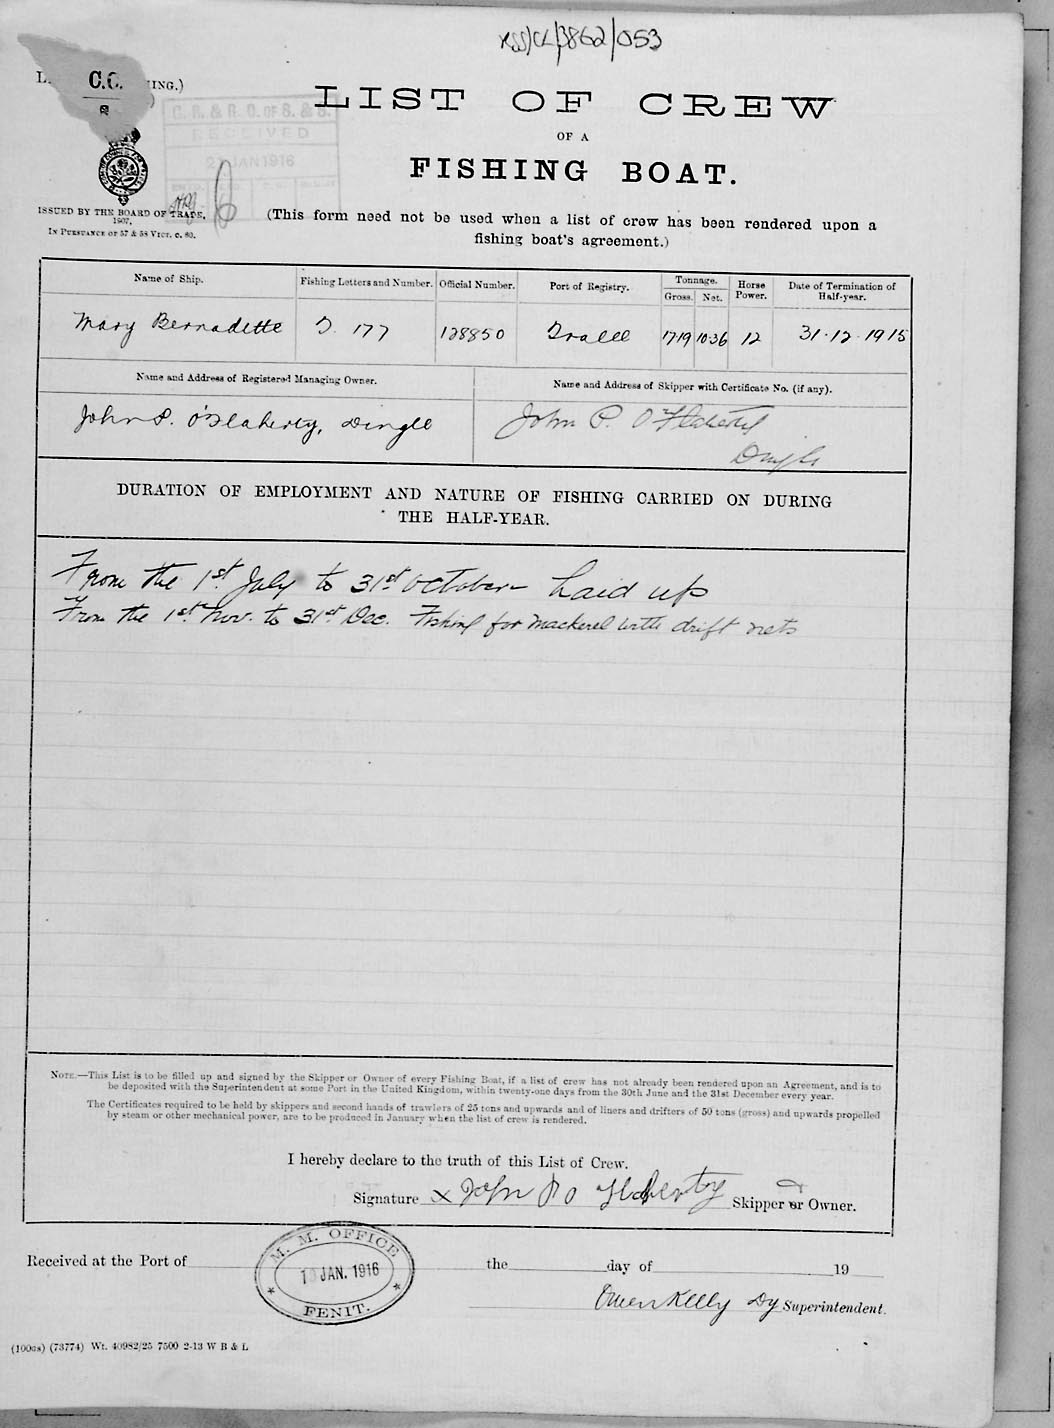 RSS/CL/3862/053
C.C.
ING.)
C. R. & R. O. OF S. & S.
RECEIVED
JAN 1916
LIST OF CREW
OF A
FISHING BOAT.
ISSUED BY THE BOARD OF TRADE,
1907,
IN PURSUANCE OF 57 & 58 VICT. C. 60.
(This form need not be used when a list of crew has been rendered upon a
fishing boat's agreement.)
Name of Ship. Fishing Letters and Number. Official Number. Port of Registry. Tonnage. Gross. Net. Horse Power. Date of Termination of Half-year.
Mary Bernadette T. 177 128850 Tralee 17.19 10.36 12 31.12.1915
Name and Address of Registered Managing Owner. Name and Address of Skipper with Certificate No. (if any).
John P. O'Flaherty, Dingle John P. O'Flaherty
Dingle
DURATION OF EMPLOYMENT AND NATURE OF FISHING CARRIED ON DURING
THE HALF-YEAR.
From the 1st July to 31st October Laid up
From the 1st Nov. to 31st Dec. Fishing for Mackerel with drift nets
NOTE.—This List is to be filled up and signed by the Skipper or Owner of every Fishing Boat, if a list of crew has not already been rendered upon an Agreement, and is to
be deposited with the Superintendent at some Port in the United Kingdom, within twenty-one days from the 30th June and the 31st December every year.
The Certificates required to be held by skippers and second hands of trawlers of 25 tons and upwards and of liners and drifters of 50 tons (gross) and upwards propelled
by steam or other mechanical power, are to be produced in January when the list of crew is rendered.
I hereby declare to the truth of this List of Crew.
Signature x John P O'Flaherty Skipper or Owner.
Received at the Port of the day of 19
M. M. OFFICE
JAN. 1916
FENIT.
Owen Kelly Dy Superintendent.
(100as) (73774) Wt. 40982/25 7500 2-13 W B & L